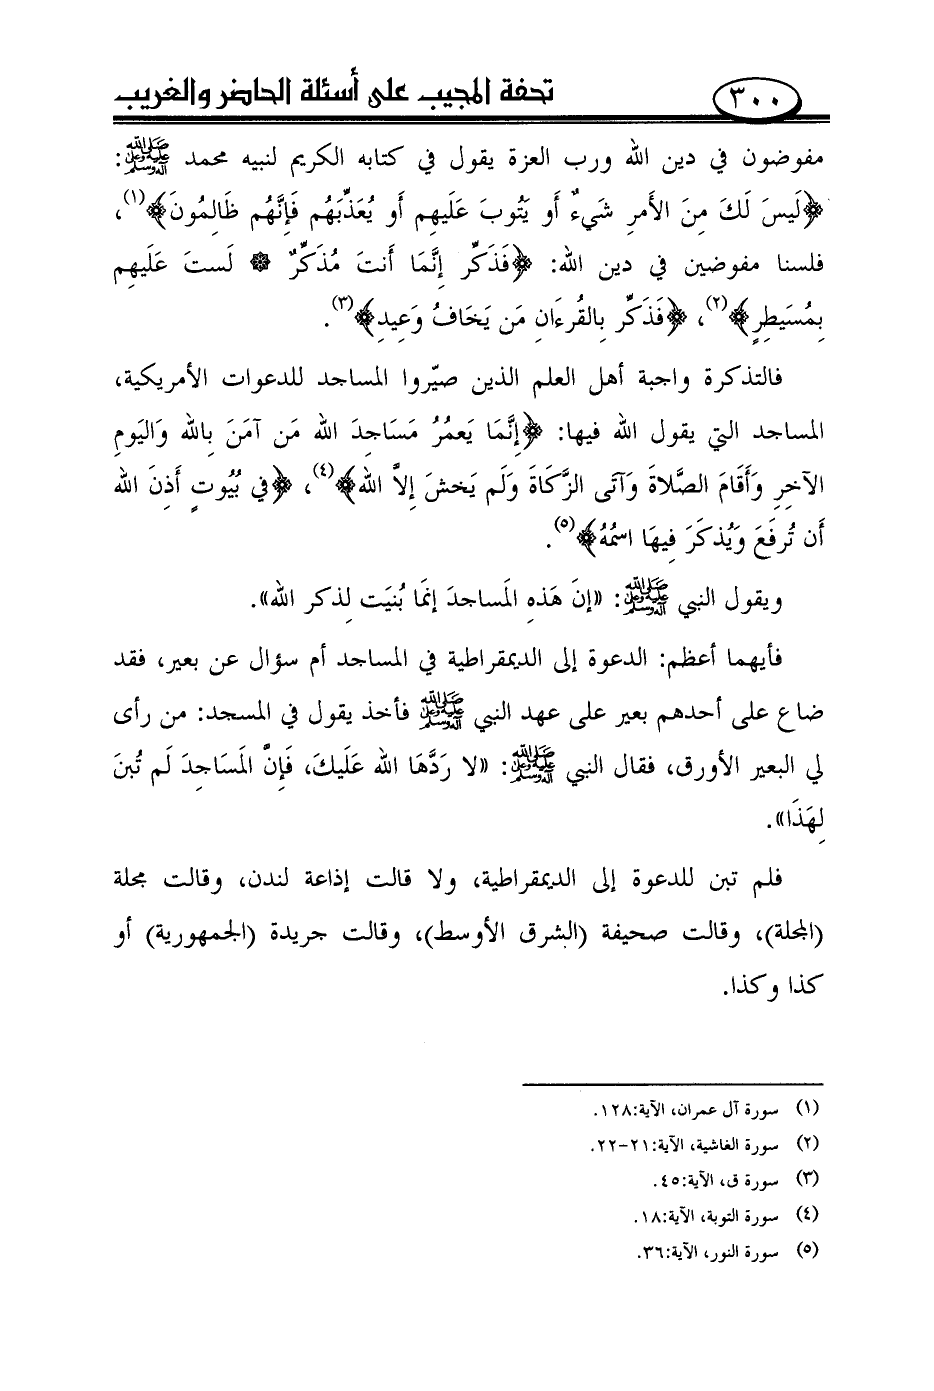 ٣٠٠ تحفة المجيب على أسئلة الحاضر والغريب
مفوضون في دين الله ورب العزة يقول في كتابه الكريم لنبيه محمد ﷺ:
﴿لَيسَ لَكَ مِنَ الأَمرِ شَيءٌ أَو يَتُوبَ عَلَيهِم أَو يُعَذِّبَهُم فَإِنَّهُم ظَالِمُونَ﴾(١)،
فلسنا مفوضين في دين الله: ﴿فَذَكِّر إِنَّمَا أَنتَ مُذَكِّرٌ * لَستَ عَلَيهِم
بِمُسَيطِرٍ﴾(٢)، ﴿فَذَكِّر بِالقُرءَانِ مَن يَخَافُ وَعِيدِ﴾(٣).
فالتذكرة واجبة أهل العلم الذين صيّروا المساجد للدعوات الأمريكية،
المساجد التي يقول الله فيها: ﴿إِنَّمَا يَعمُرُ مَسَاجِدَ الله مَن آمَنَ بِالله وَاليَومِ
الآخِرِ وَأَقَامَ الصَّلاةَ وَآتَى الزَّكَاةَ وَلَم يَخشَ إِلاَّ الله﴾(٤)، ﴿في بُيُوتٍ أَذِنَ الله
أَن تُرفَعَ وَيُذكَرَ فِيهَا اسمُهُ﴾(٥).
ويقول النبي ﷺ: «إنَ هَذِهِ المَساجدَ إنمَا بُنيَت لِذكر الله».
فأيهما أعظم: الدعوة إلى الديمقراطية في المساجد أم سؤال عن بعير، فقد
ضاع على أحدهم بعير على عهد النبي ﷺ فأخذ يقول في المسجد: من رأى
لي البعير الأورق، فقال النبي ﷺ: «لا رَدَّهَا الله عَلَيكَ، فَإِنَّ المَسَاجِدَ لَم تُبنَ
لِهَذَا».
فلم تبن للدعوة إلى الديمقراطية، ولا قالت إذاعة لندن، وقالت مجلة
(المجلة)، وقالت صحيفة (الشرق الأوسط)، وقالت جريدة (الجمهورية) أو
كذا وكذا.
(١) سورة آل عمران، الآية:١٢٨.
(٢) سورة الغاشية، الآية:٢١-٢٢.
(٣) سورة ق، الآية:٤٥.
(٤) سورة التوبة، الآية:١٨.
(٥) سورة النور، الآية:٣٦.